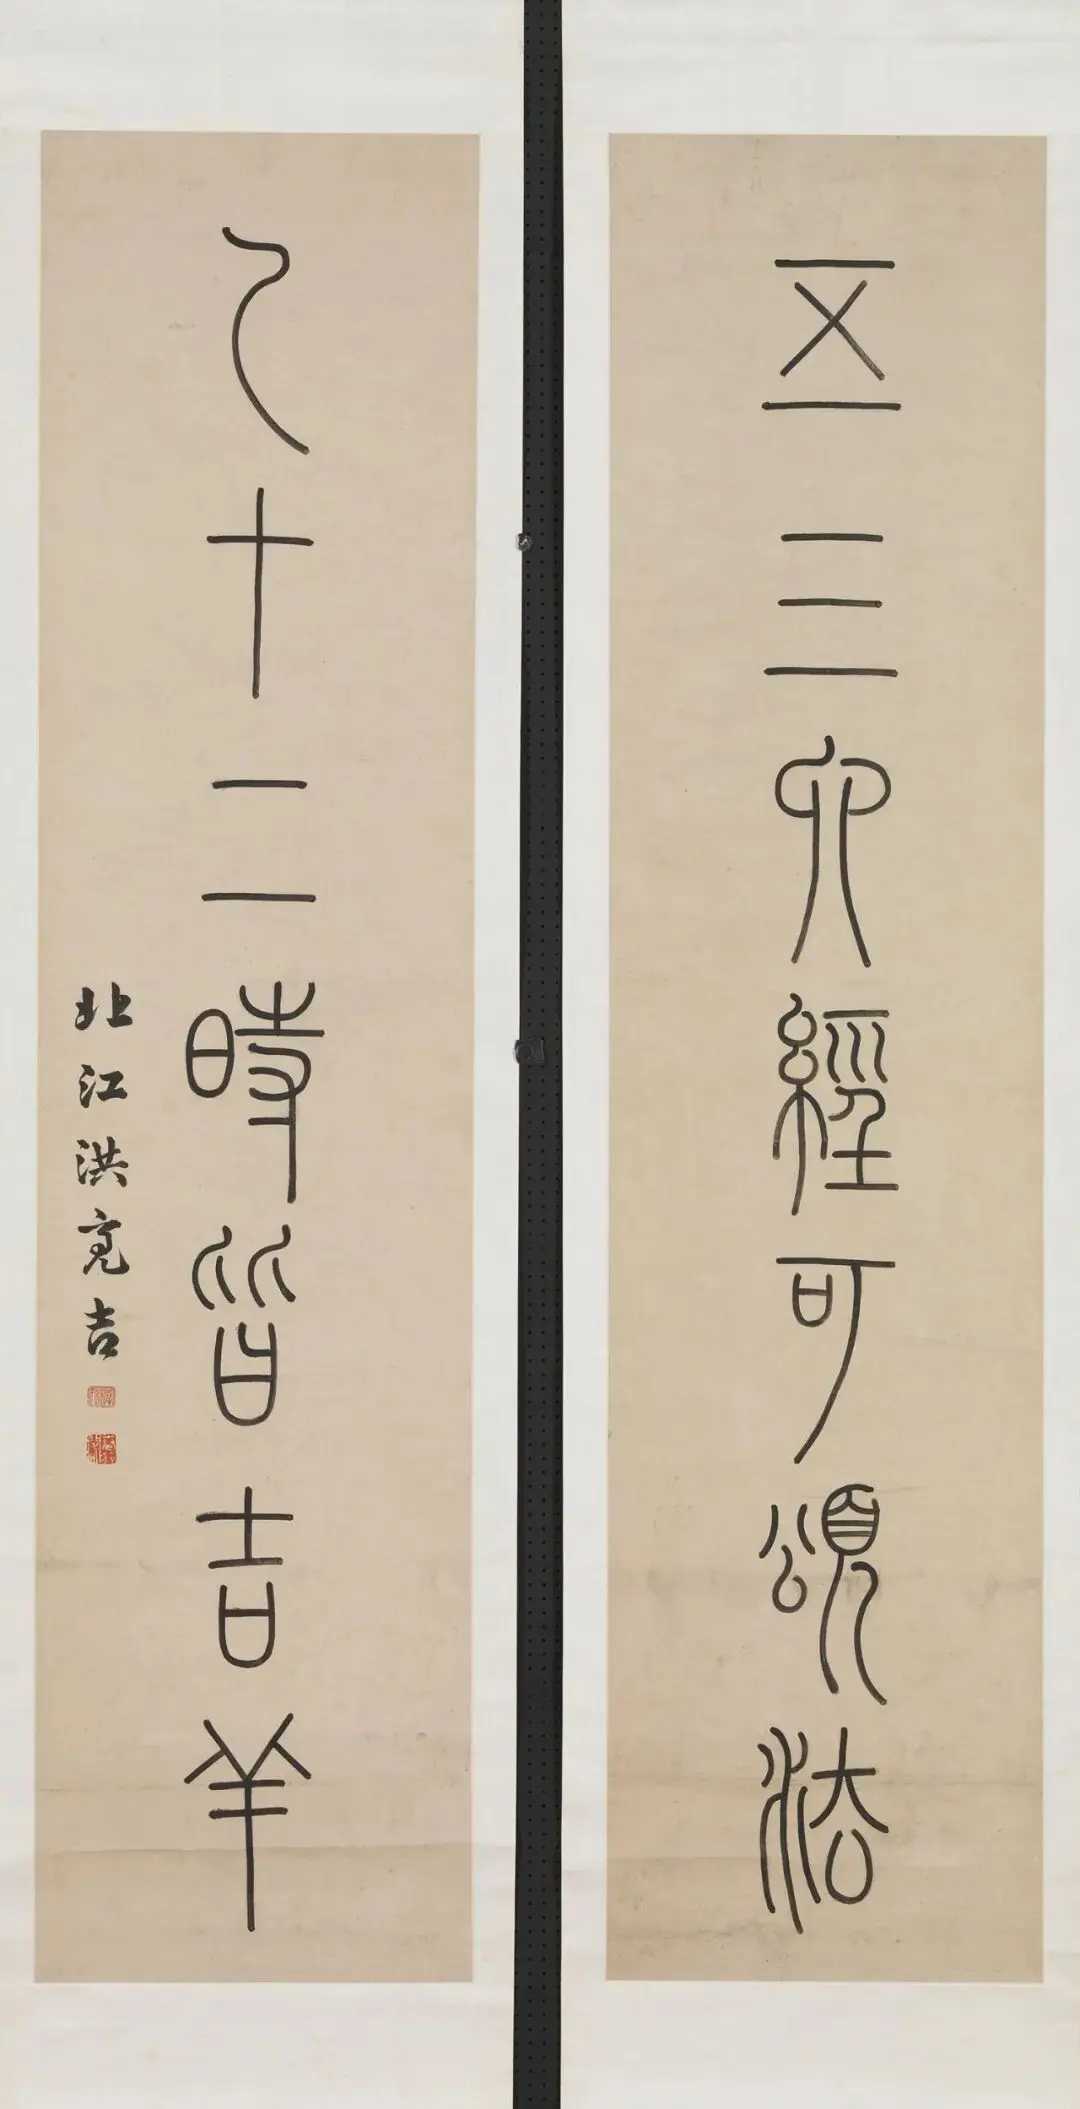 五三六經可頌法
乙十二時皆吉羊
北江洪亮吉